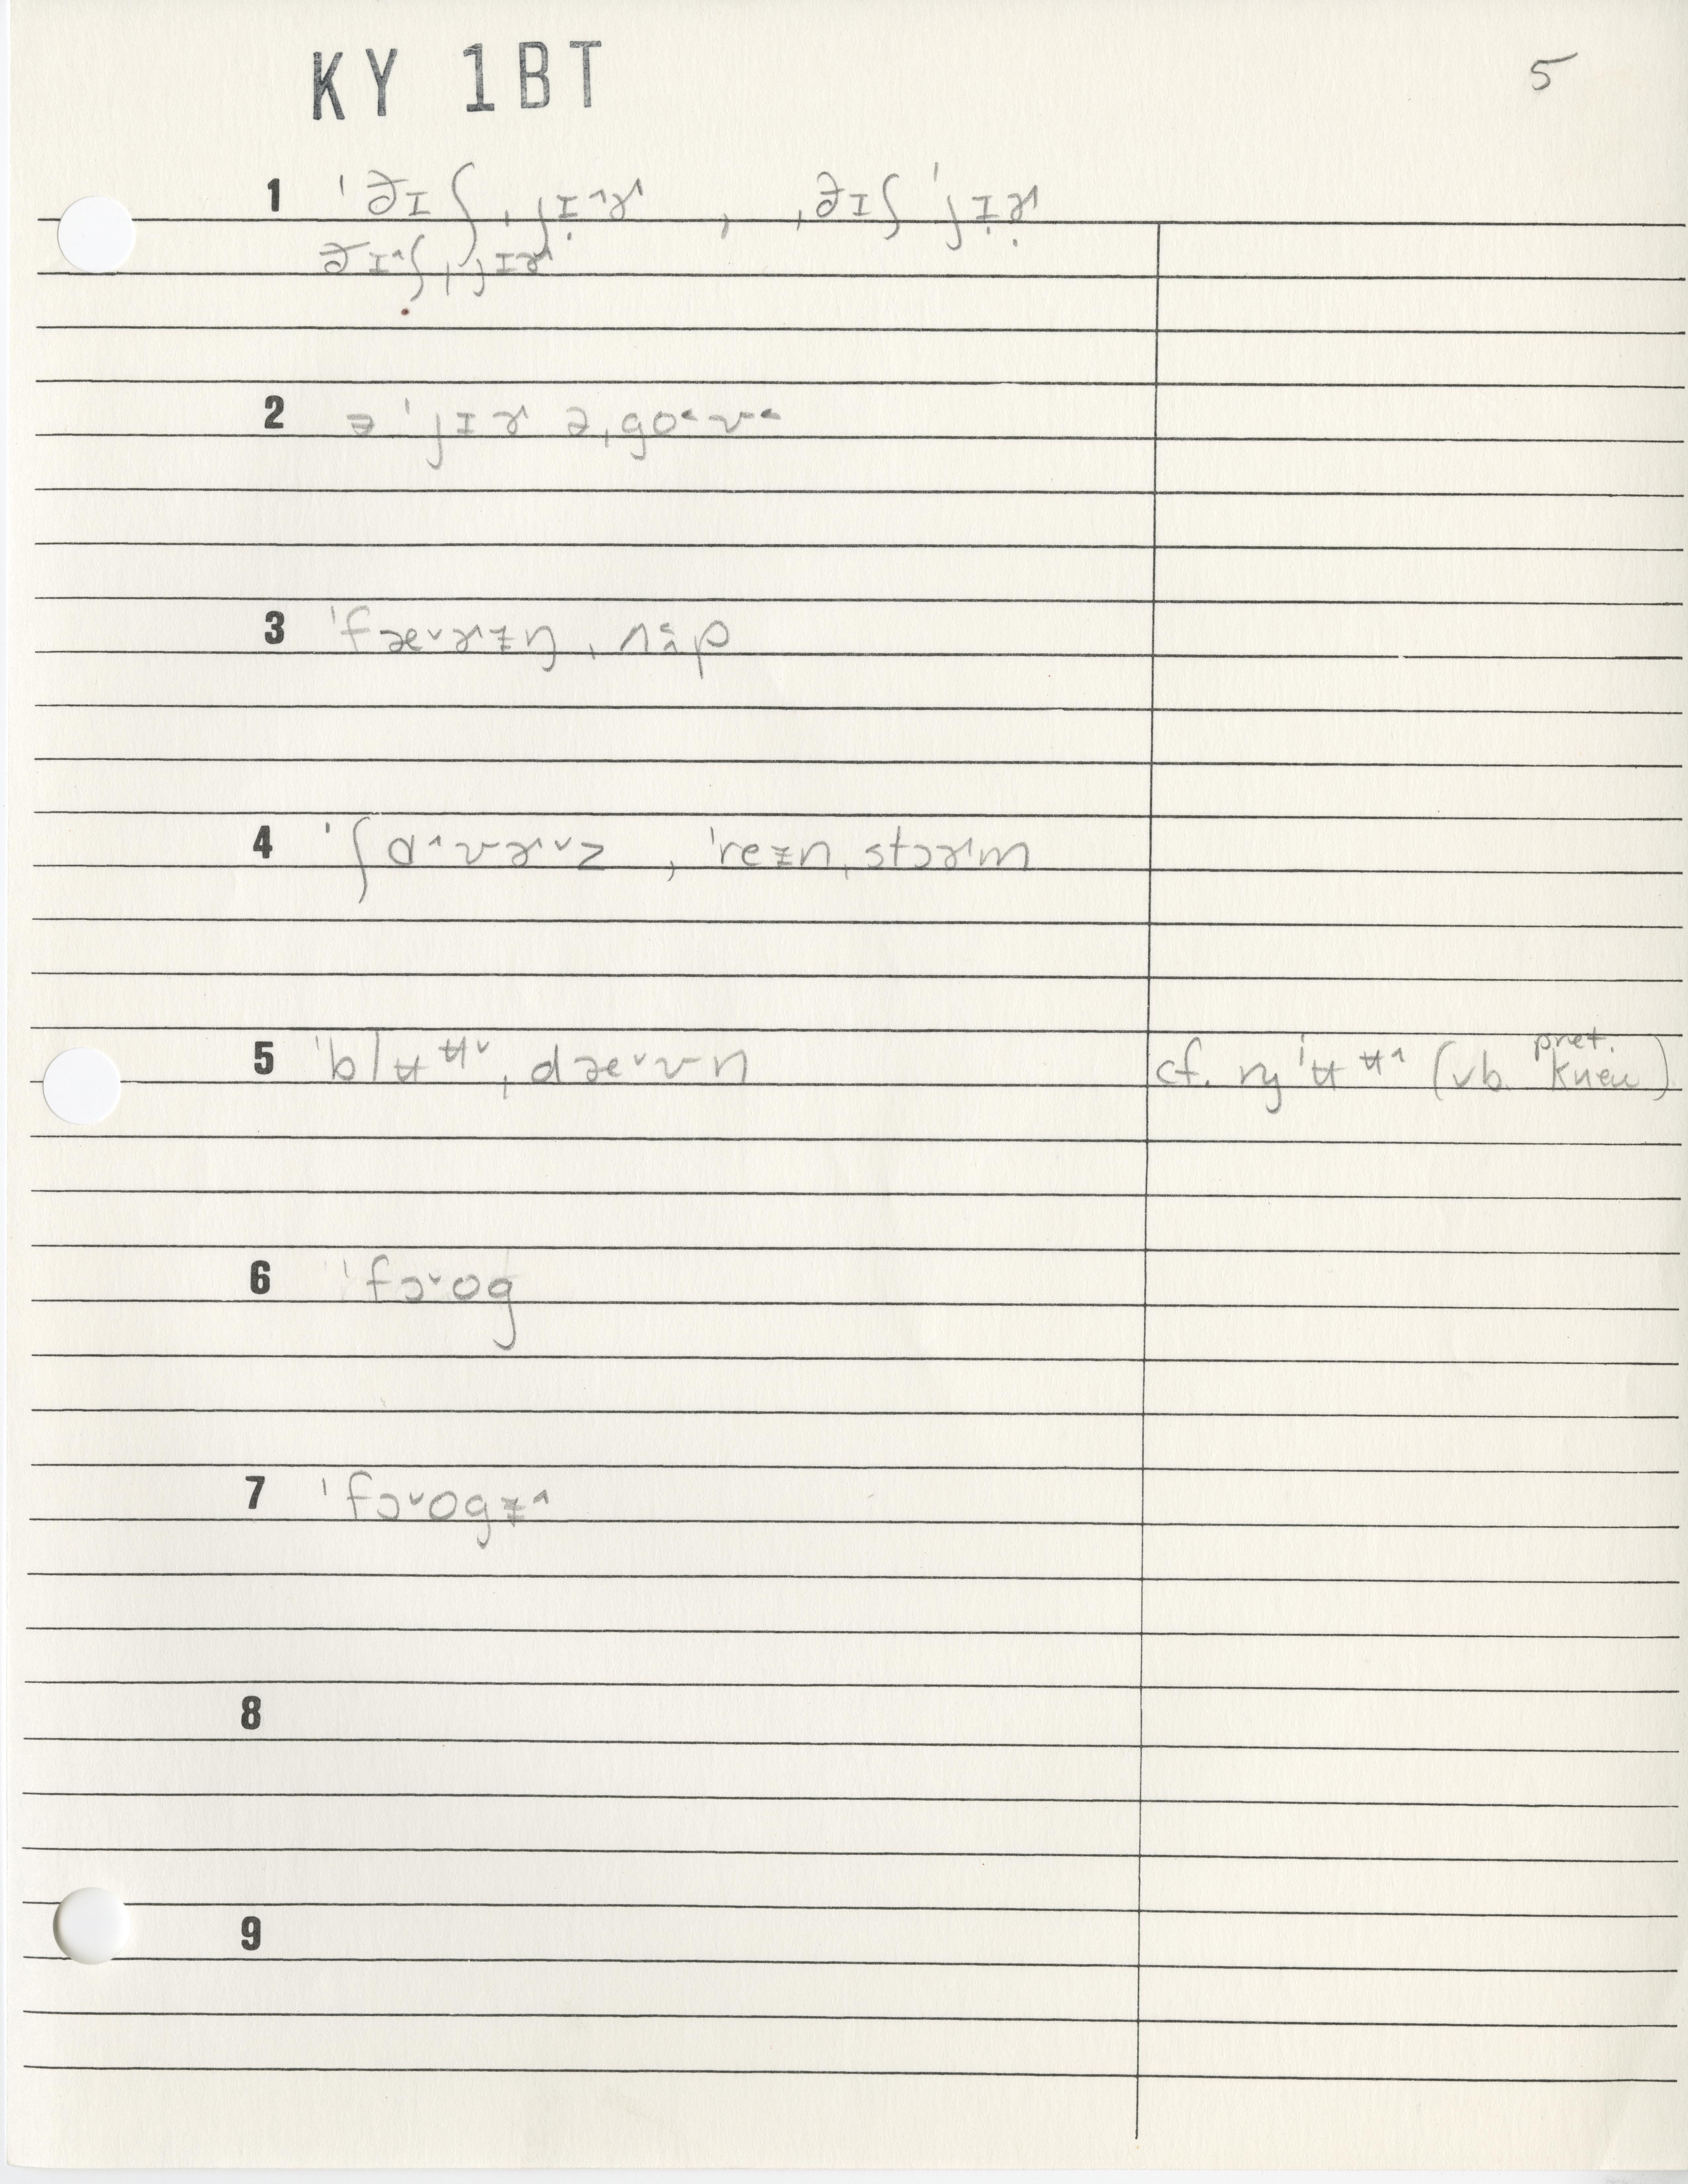 KY 1BT 5
1 ˈðɪʃˌjɪ˄ɚ , ˌðɪʃˈjɪ̣ɚ̣
ðɪ˄ʃˌjɪɚ
2 əˈjɪɚ əˌgo˂ʊ˂
3 ˈfæ˅ɚᵻŋ ˌʌp
4 ˈʃɑ˄ʊɚ˅z , ˈreᵻnˌstɔɚm
5 ˈblʉʉ˅ˌdæ˅ʊn cf. nʲˈʉʉ˄ (vb. pret. knew)
6 ˈfɔ˅og
7 ˈfɔ˅ogᵻ˄
8
9